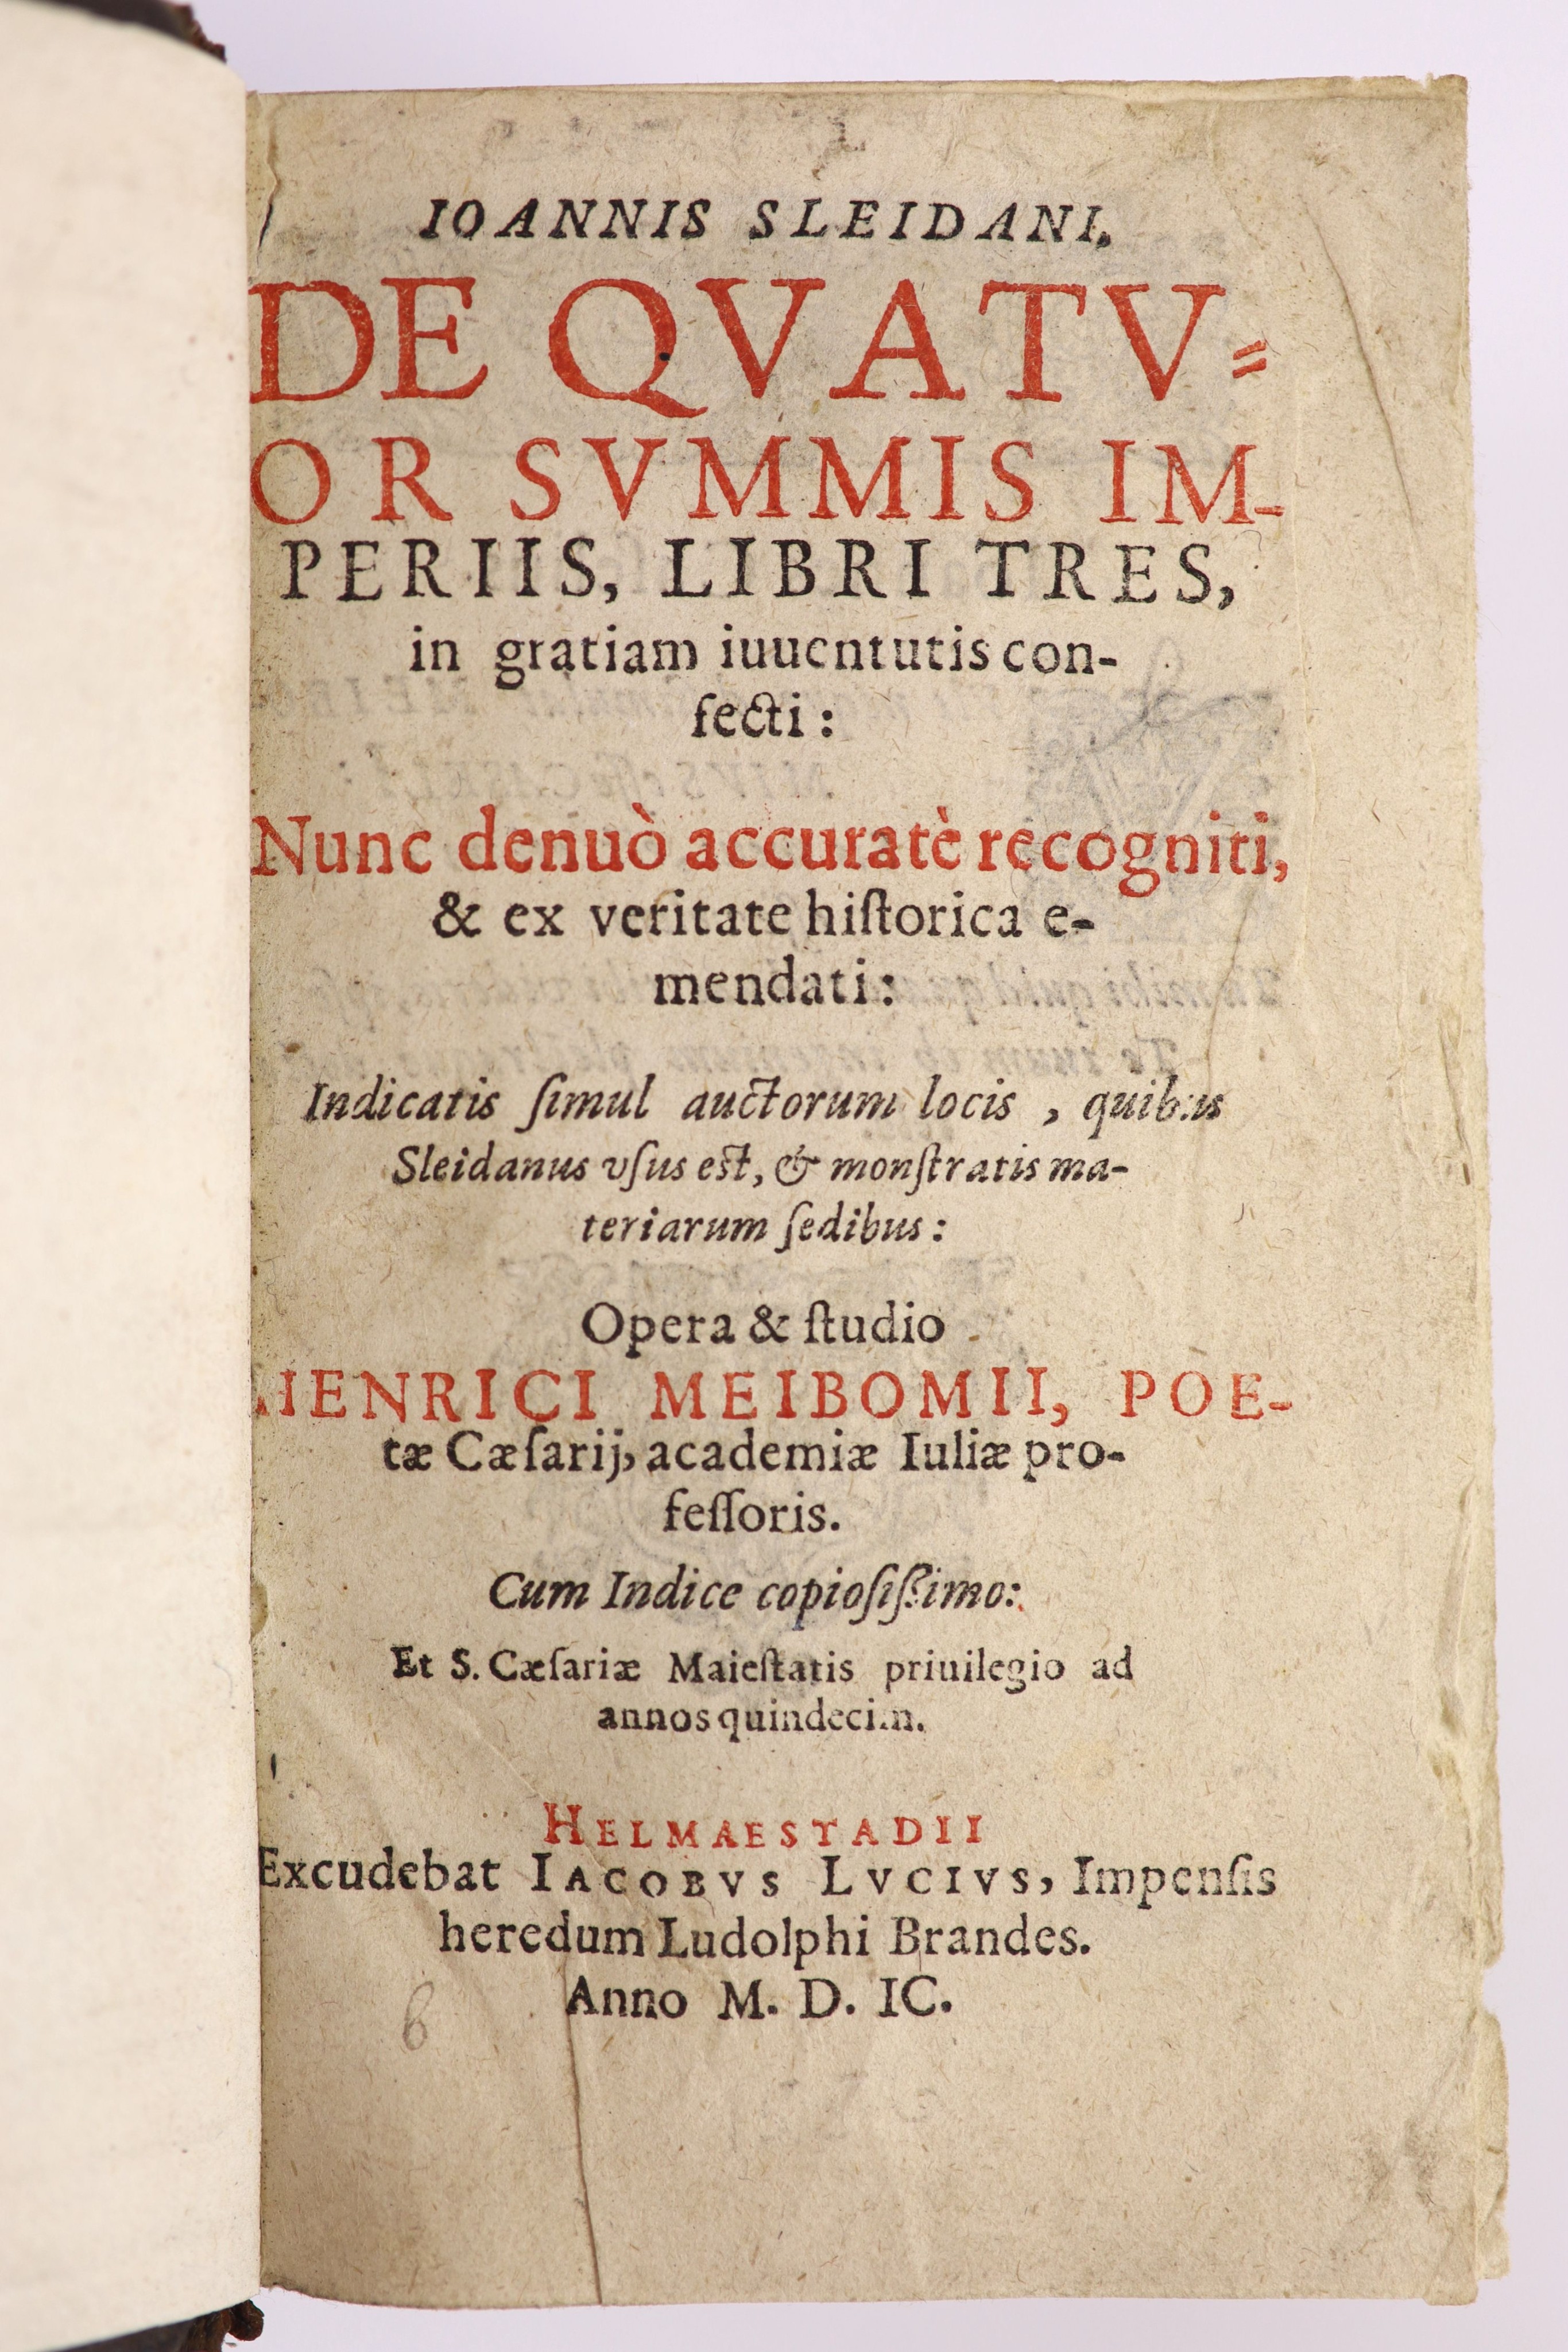 IOANNIS SLEIDANI,
DE QVATV=
OR SVMMIS IM-
PERIIS, LIBRI TRES,
in gratiam iuuentutis con-
fecti:
Nunc denuò accuratè recogniti,
& ex veritate hiſtorica e-
mendati:
Indicatis ſimul auctorum locis, quibus
Sleidanus vſus est, & monſtratis ma-
teriarum ſedibus:
Opera & ſtudio
HENRICI MEIBOMII, POE-
tæ Cæſarij, academiæ Iuliæ pro-
feſſoris.
Cum Indice copioſiſsimo:
Et S. Cæſariæ Maieſtatis priuilegio ad
annos quindecim.
HELMAESTADII
Excudebat IACOBVS LVCIVS, Impenſis
heredum Ludolphi Brandes.
Anno M. D. IC.
6